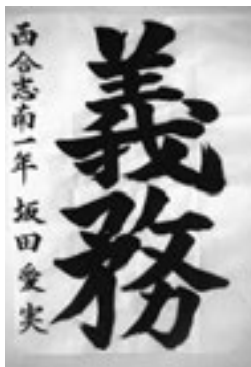 義務
西合志南一年 坂田愛実